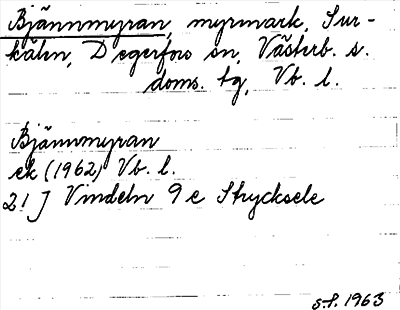 Bjännmyran, myrmark, Sur-
kälen, Degerfors sn, Västerb. s.
doms. tg, Vb. l.
Bjännmyran
ek (1962) Vb. l.
21 J Vindeln 9 e Strycksele
s.f. 1963